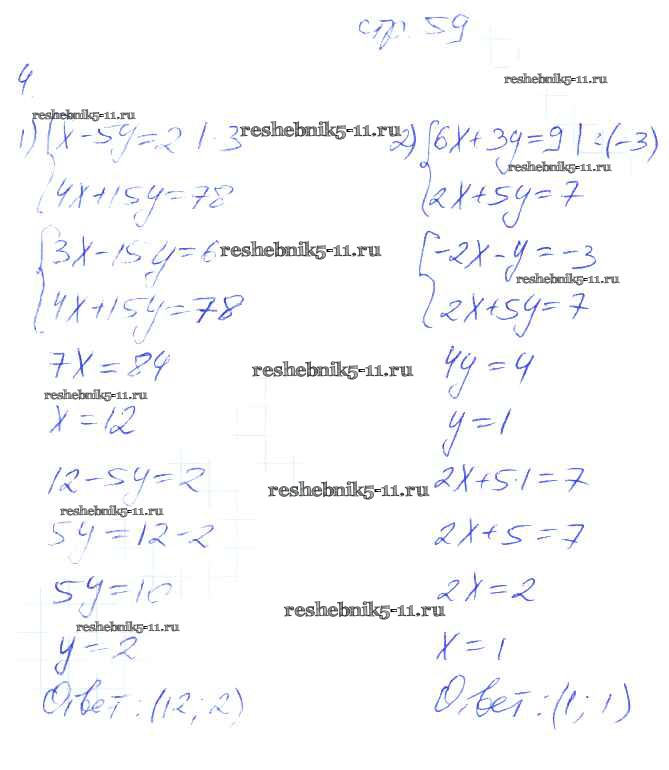 стр. 59
reshebnik5-11.ru
4.
reshebnik5-11.ru
1) { x - 5y = 2 | · 3
reshebnik5-11.ru
4x + 15y = 78
{ 3x - 15y = 6
reshebnik5-11.ru
4x + 15y = 78
7x = 84
reshebnik5-11.ru
reshebnik5-11.ru
x = 12
12 - 5y = 2
reshebnik5-11.ru
reshebnik5-11.ru
5y = 12 - 2
5y = 10
reshebnik5-11.ru
reshebnik5-11.ru
y = 2
Ответ: (12; 2)
2) { 6x + 3y = 9 | : (-3)
reshebnik5-11.ru
2x + 5y = 7
{ -2x - y = -3
reshebnik5-11.ru
2x + 5y = 7
4y = 4
y = 1
2x + 5·1 = 7
2x + 5 = 7
2x = 2
x = 1
Ответ: (1; 1)